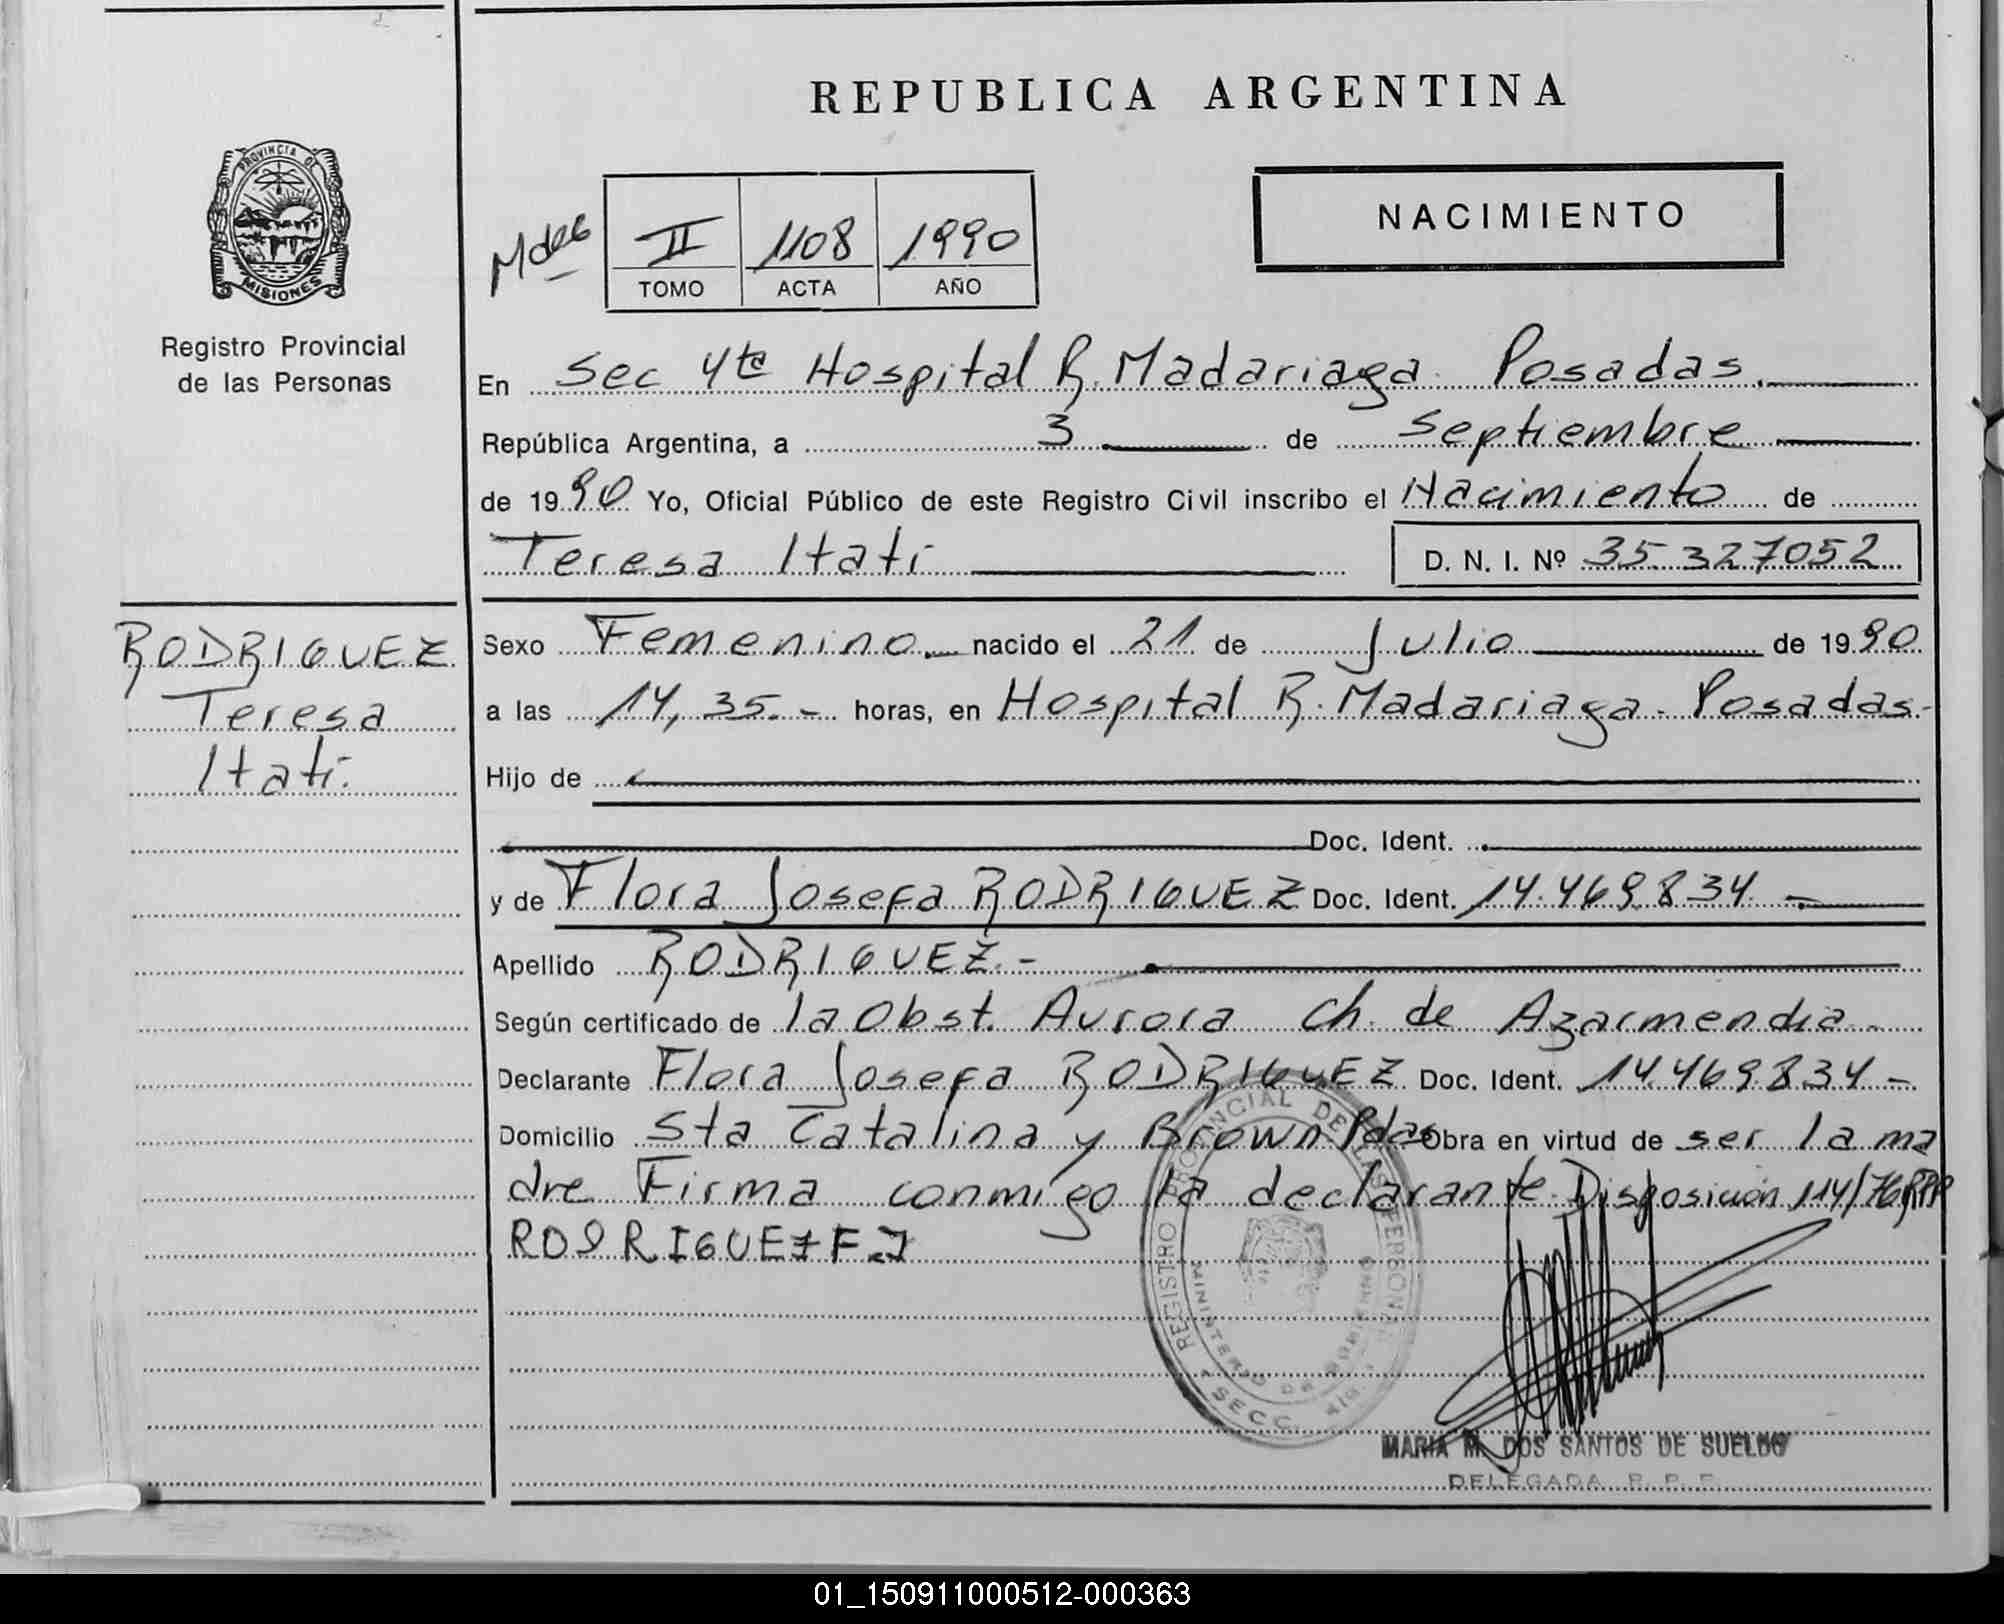 REPUBLICA ARGENTINA
NACIMIENTO
PROVINCIA DE
MISIONES
Registro Provincial
de las Personas
Mdes
II 1108 1990
TOMO ACTA AÑO
En Sec 4ta Hospital R. Madariaga Posadas.
República Argentina, a 3 de Septiembre
de 1990 Yo, Oficial Público de este Registro Civil inscribo el Nacimiento de
Teresa Itatí D. N. I. Nº 35.327052
RODRIGUEZ
Teresa
Itatí.
Sexo Femenino.- nacido el 21 de Julio de 1990
a las 14,35.- horas, en Hospital R. Madariaga - Posadas.-
Hijo de
Doc. Ident.
y de Flora Josefa RODRIGUEZ Doc. Ident. 14.469.834.-
Apellido RODRIGUEZ.-
Según certificado de la Obst. Aurora Ch. de Azarmendia.
Declarante Flora Josefa RODRIGUEZ Doc. Ident. 14.469.834-
Domicilio Sta Catalina y Brown Pdas Obra en virtud de ser la ma
dre Firma conmigo la declarante. Disposición 114/76 RPP
RODRIGUEZ F.J
REGISTRO PROVINCIAL DE LAS PERSONAS
MINISTERIO DE GOBIERNO
SECC. 4ta
MARIA M. DOS SANTOS DE SUELDO
DELEGADA R. P. P.
01_150911000512-000363